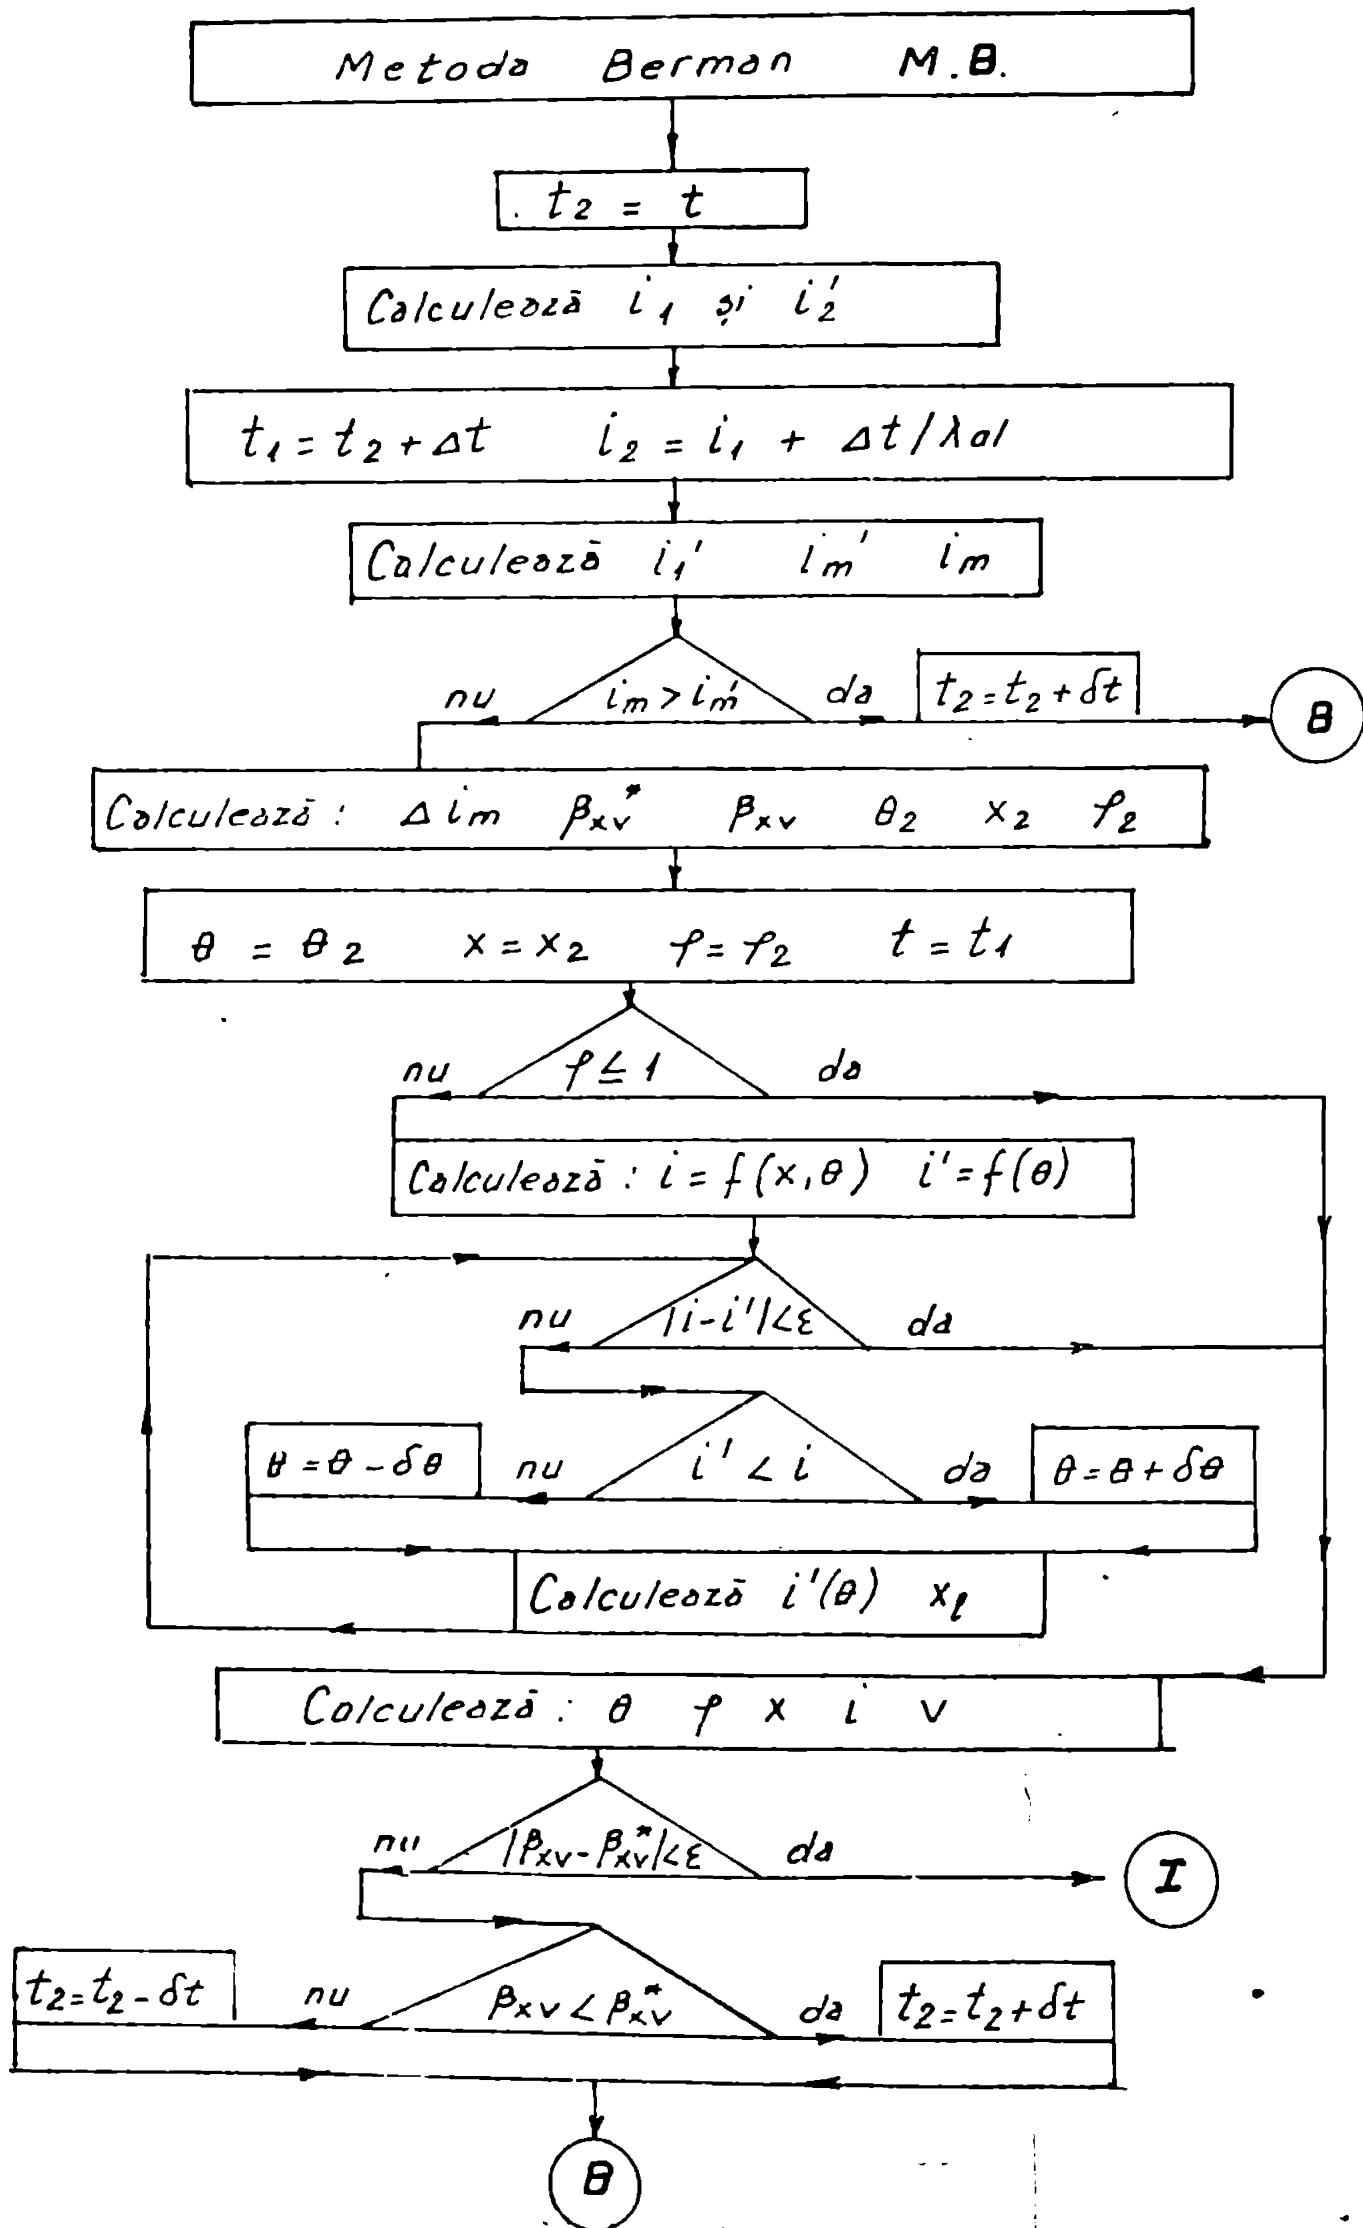 Metoda Berman M.B.
t₂ = t
Calculează i₁ și i₂'
t₁ = t₂ + Δt i₂ = i₁ + Δt/λal
Calculează i₁' im' im
nu im > im' da t₂ = t₂ + δt B
Calculează: Δim βxv* βxv θ₂ x₂ φ₂
θ = θ₂ x = x₂ φ = φ₂ t = t₁
nu φ ≤ 1 da
Calculează: i = f(x,θ) i' = f(θ)
nu |i-i'|<ε da
θ = θ - δθ nu i' < i da θ = θ + δθ
Calculează i'(θ) xl
Calculează: θ φ x i v
nu |βxv - βxv*|<ε da I
t₂ = t₂ - δt nu βxv < βxv* da t₂ = t₂ + δt
B